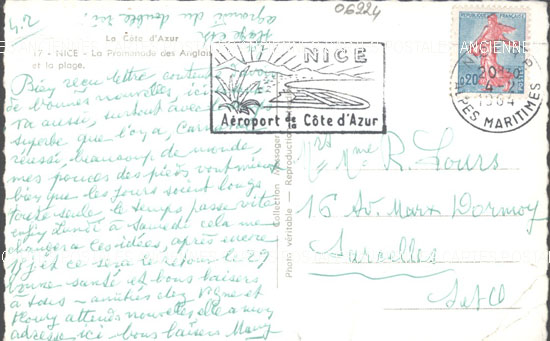 06224
La Côte d'Azur
17 - NICE - La Promenade des Anglais
et la plage.
plage est
agrandi du double ici !
NICE
Aéroport de la Côte d'Azur
REPUBLIQUE FRANCAISE
0,20
POSTES
NICE
20H30
4
1964
ALPES MARITIMES
Collection Messager
Photo véritable - Reproduction
Bien reçu lettre content
de bonnes nouvelles, ici
va aussi, surtout avec
superbe que l'on a, Carnaval
réussi, beaucoup de monde,
mes pouces des pieds vont mieux
bien que les jours soient longs
toute seule, le temps passe vite
enfin lundi à samedi cela me
changera les idées, après encore
15 j et ce sera le retour le 29
bonne santé et bons baisers
à tous - amitiés chez
attends nouvelles elle a mon
adresse ici bons baisers Mamy
Mme R. Lours
16 Av. Marx Dormoy
Sarcelles
S et O